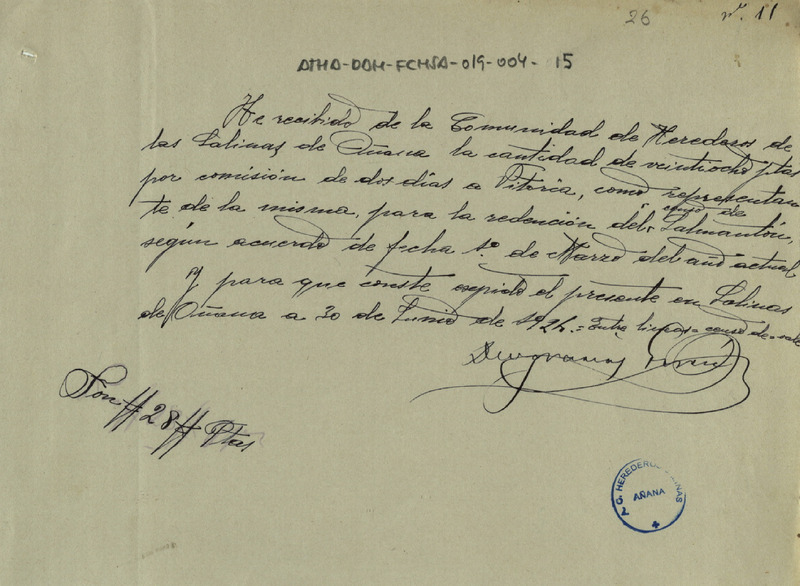 26
nº. 11
ATHA-DAH-FCHSA-019-004-15
He recibido de la Comunidad de Herederos de
las Salinas de Añana la cantidad de veintiocho ptas
por comisión de dos días a Vitoria, como representan
te de la misma, para la redención del censo de Salmantón,
según acuerdo de fecha 1º. de Marzo del año actual
Y para que conste expido el presente en Salinas
de Añana a 30 de Junio de 1924.= Entre lineas = censo de = vale
Deogracias
Son # 28 # Ptas
G. HEREDEROS
AÑANA